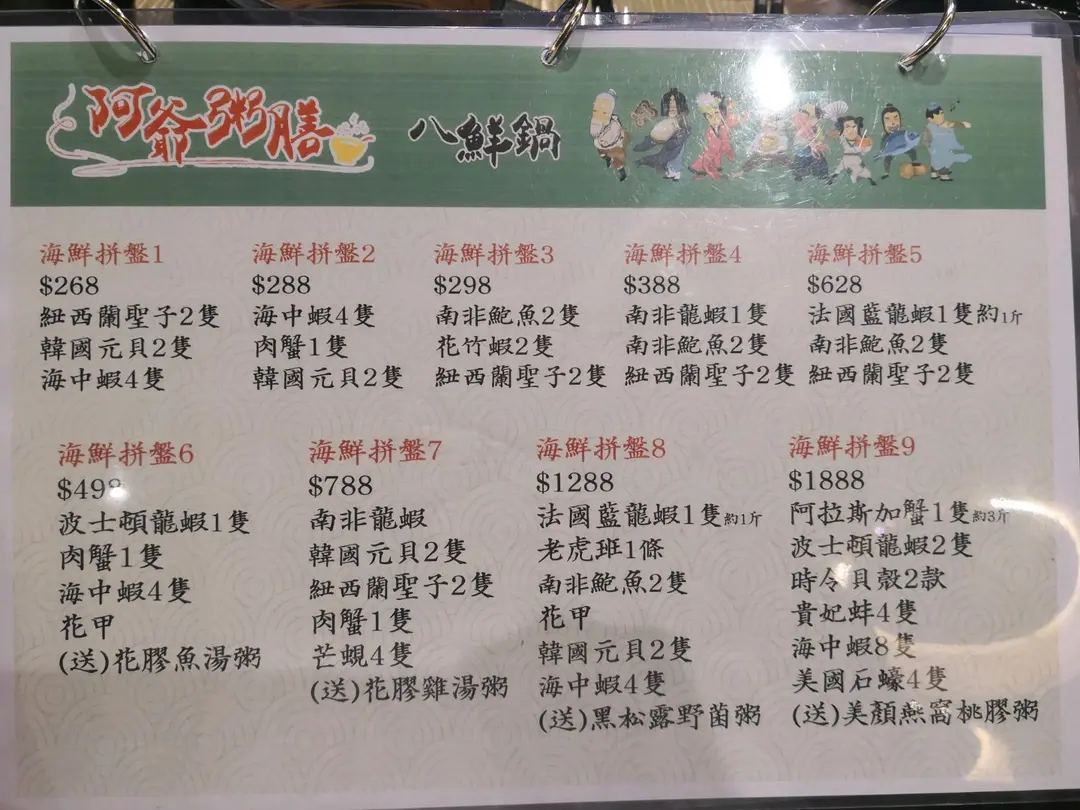 阿爺粥膳
八鮮鍋
海鮮拼盤1
$268
紐西蘭聖子2隻
韓國元貝2隻
海中蝦4隻
海鮮拼盤2
$288
海中蝦4隻
肉蟹1隻
韓國元貝2隻
海鮮拼盤3
$298
南非鮑魚2隻
花竹蝦2隻
紐西蘭聖子2隻
海鮮拼盤4
$388
南非龍蝦1隻
南非鮑魚2隻
紐西蘭聖子2隻
海鮮拼盤5
$628
法國藍龍蝦1隻約1斤
南非鮑魚2隻
紐西蘭聖子2隻
海鮮拼盤6
$498
波士頓龍蝦1隻
肉蟹1隻
海中蝦4隻
花甲
(送)花膠魚湯粥
海鮮拼盤7
$788
南非龍蝦
韓國元貝2隻
紐西蘭聖子2隻
肉蟹1隻
芒蜆4隻
(送)花膠雞湯粥
海鮮拼盤8
$1288
法國藍龍蝦1隻約1斤
老虎班1條
南非鮑魚2隻
花甲
韓國元貝2隻
海中蝦4隻
(送)黑松露野菌粥
海鮮拼盤9
$1888
阿拉斯加蟹1隻約3斤
波士頓龍蝦2隻
時令貝殼2款
貴妃蚌4隻
海中蝦8隻
美國石蠔4隻
(送)美顏燕窩桃膠粥